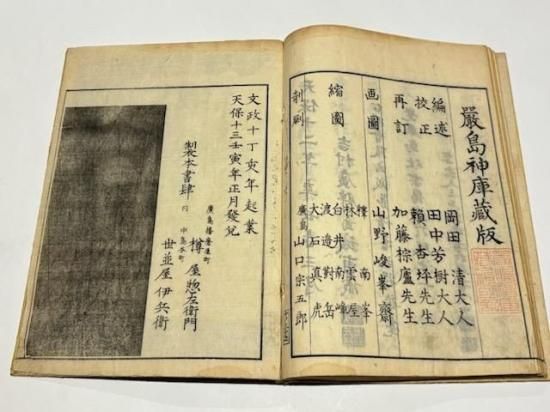 嚴島神庫藏版
編述 岡田 清大人
校正 田中芳樹大人
賴 杏坪先生
再訂 加藤棕廬先生
画圖 山野峻峯齋
南峯
林 雲屋
白井南嶂
縮圖 渡邉對岳
大石真虎
剞劂 廣島 山口宗五郎
文政十丁亥年起業
天保十三壬寅年正月發兌
製本書肆
廣島播磨屋町
樽屋惣左衞門
中島本町
世並屋伊兵衞